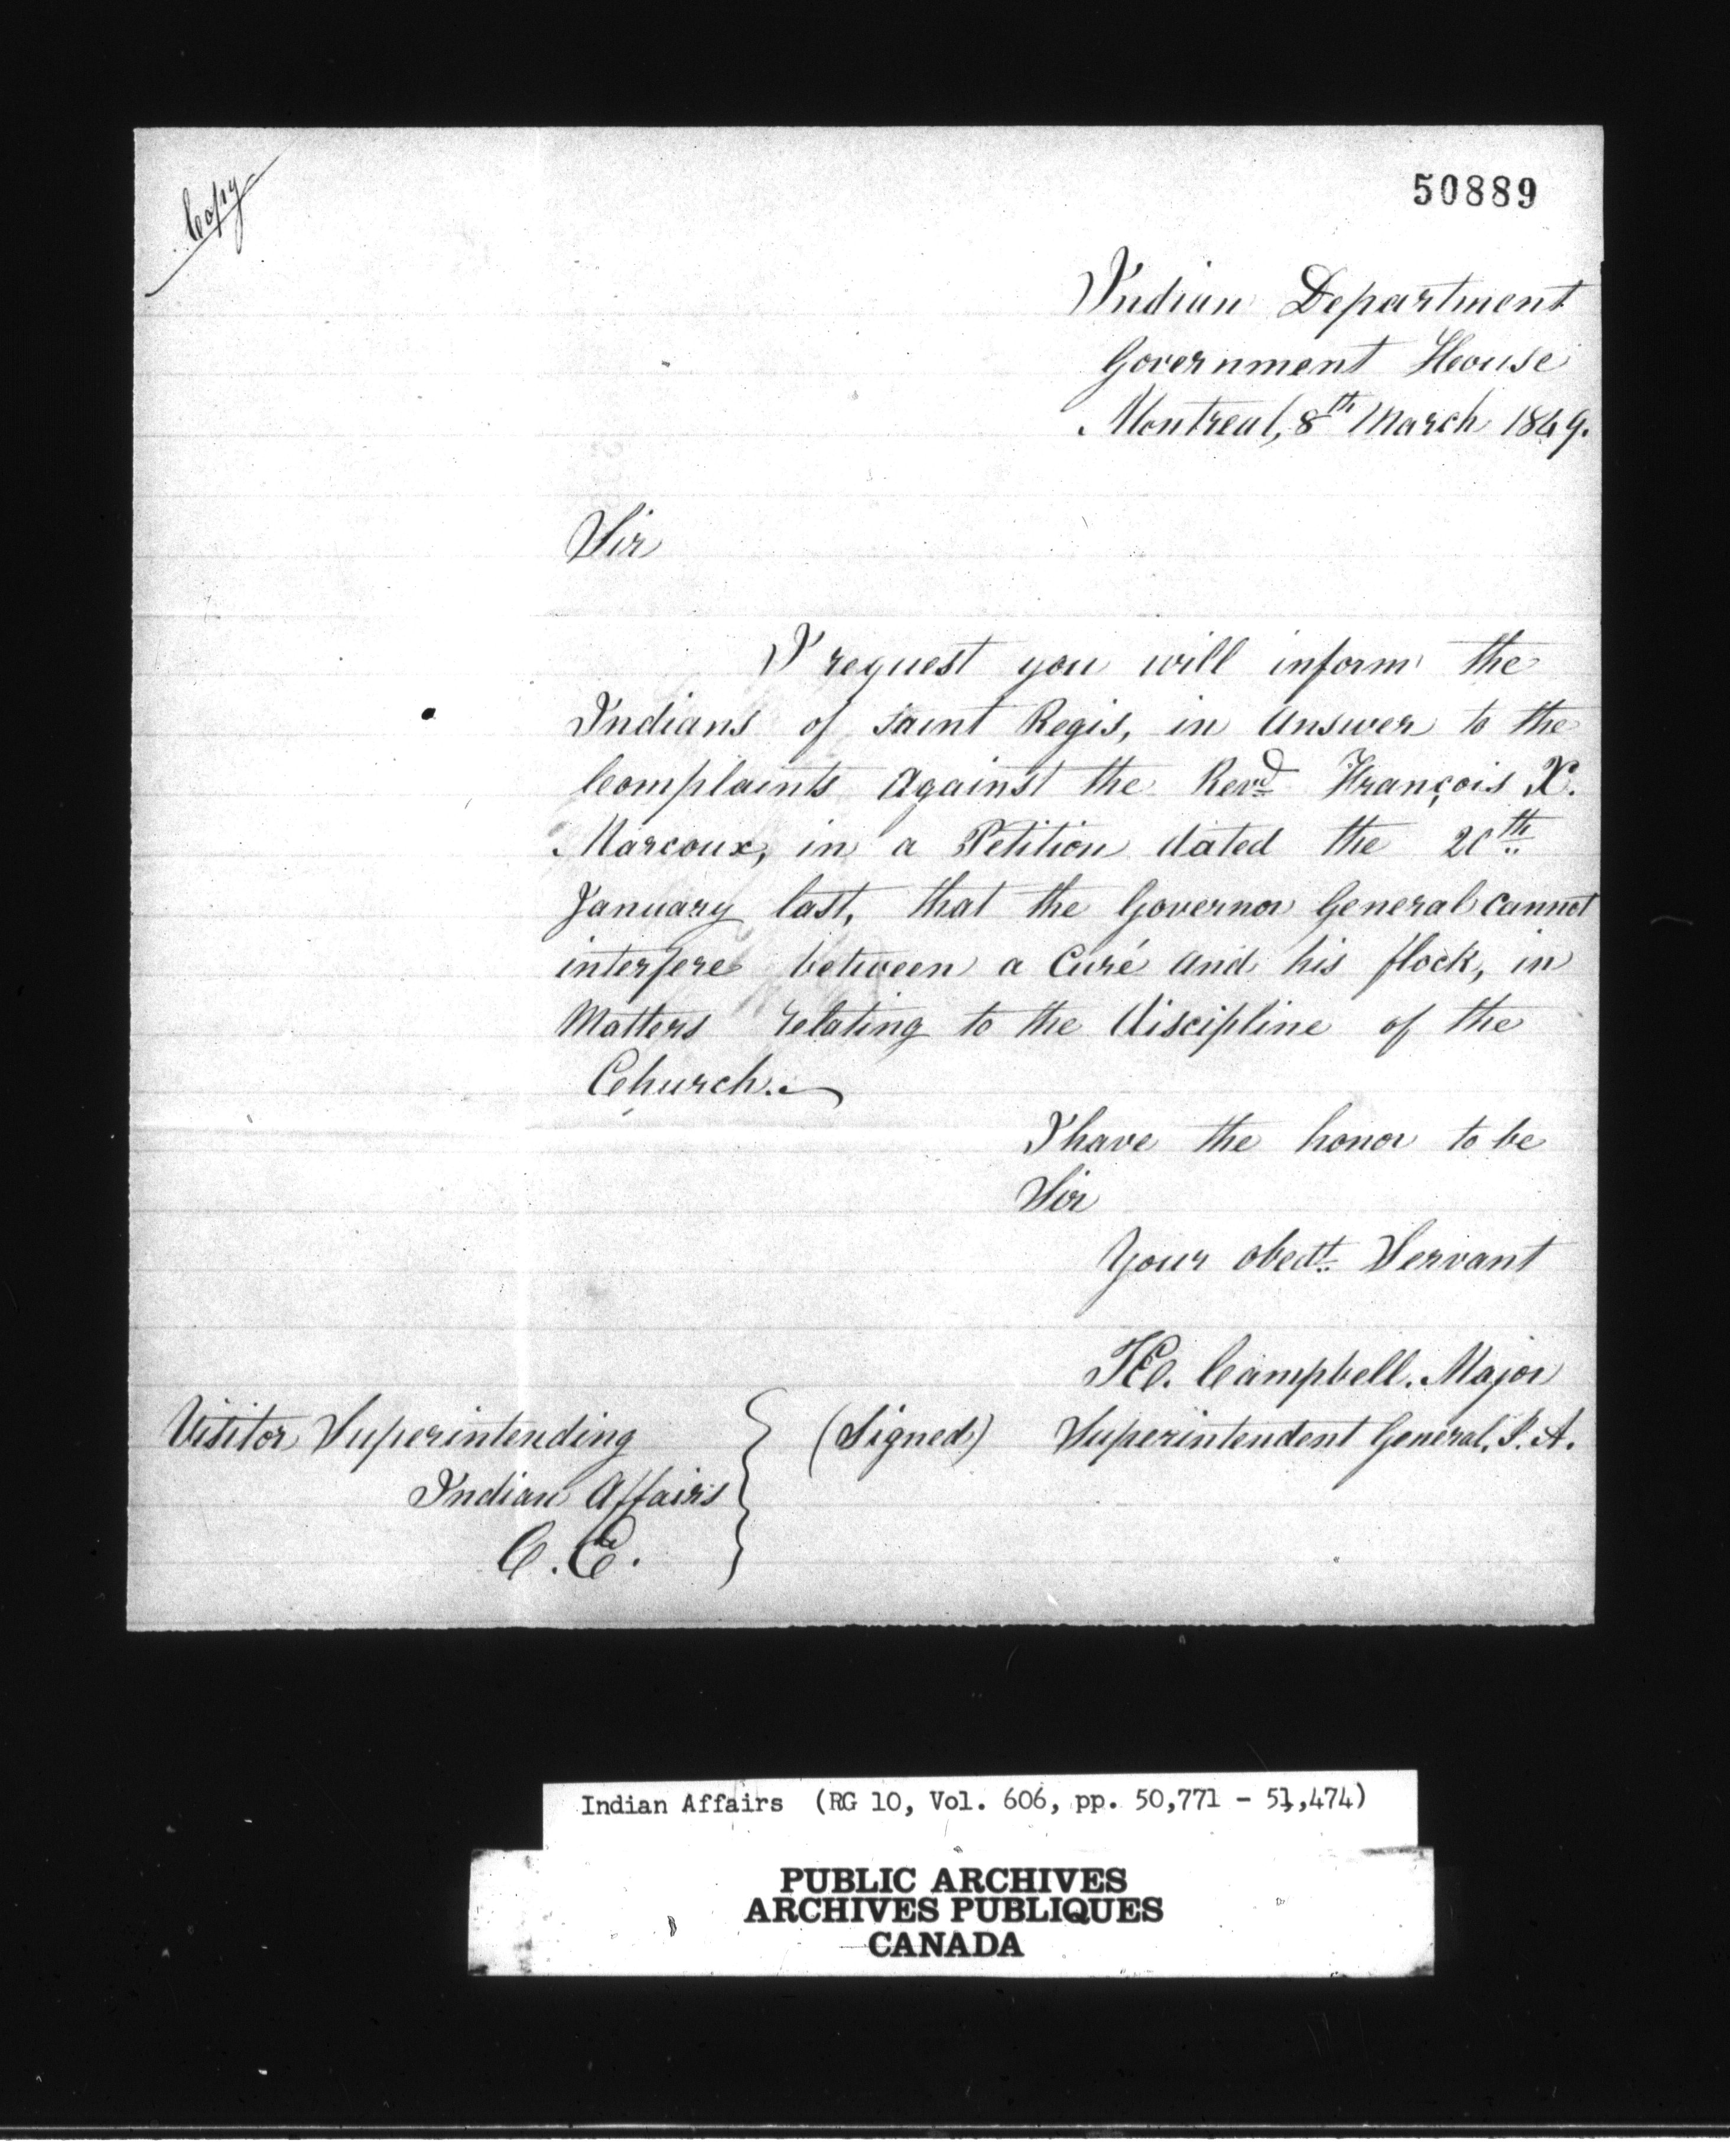 Copy
50889
Indian Department
Government House
Montreal, 8th March 1849.
Sir
I request you will inform the
Indians of Saint Regis, in Answer to the
Complaints Against the Revd François X.
Marcoux, in a Petition dated the 20th
January last, that the Governor General cannot
interfere between a Curé and his flock, in
Matters relating to the Discipline of the
Church.
I have the honor to be
Sir
Your obedt. Servant
T.E. Campbell. Major
(Signed) Superintendent General, I. A.
Visitor Superintending
Indian Affairs
C.E.
Indian Affairs (RG 10, Vol. 606, pp. 50,771 - 51,474)
PUBLIC ARCHIVES
ARCHIVES PUBLIQUES
CANADA